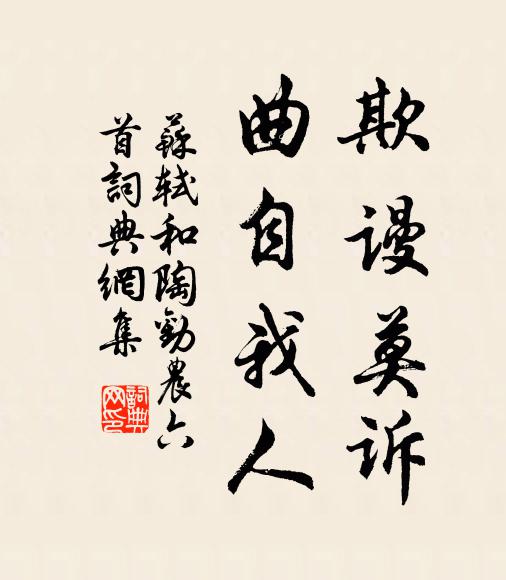 欺謾莫訴
曲自我人
蘇軾和陶勸農六
首詞典網集
詞典
网印